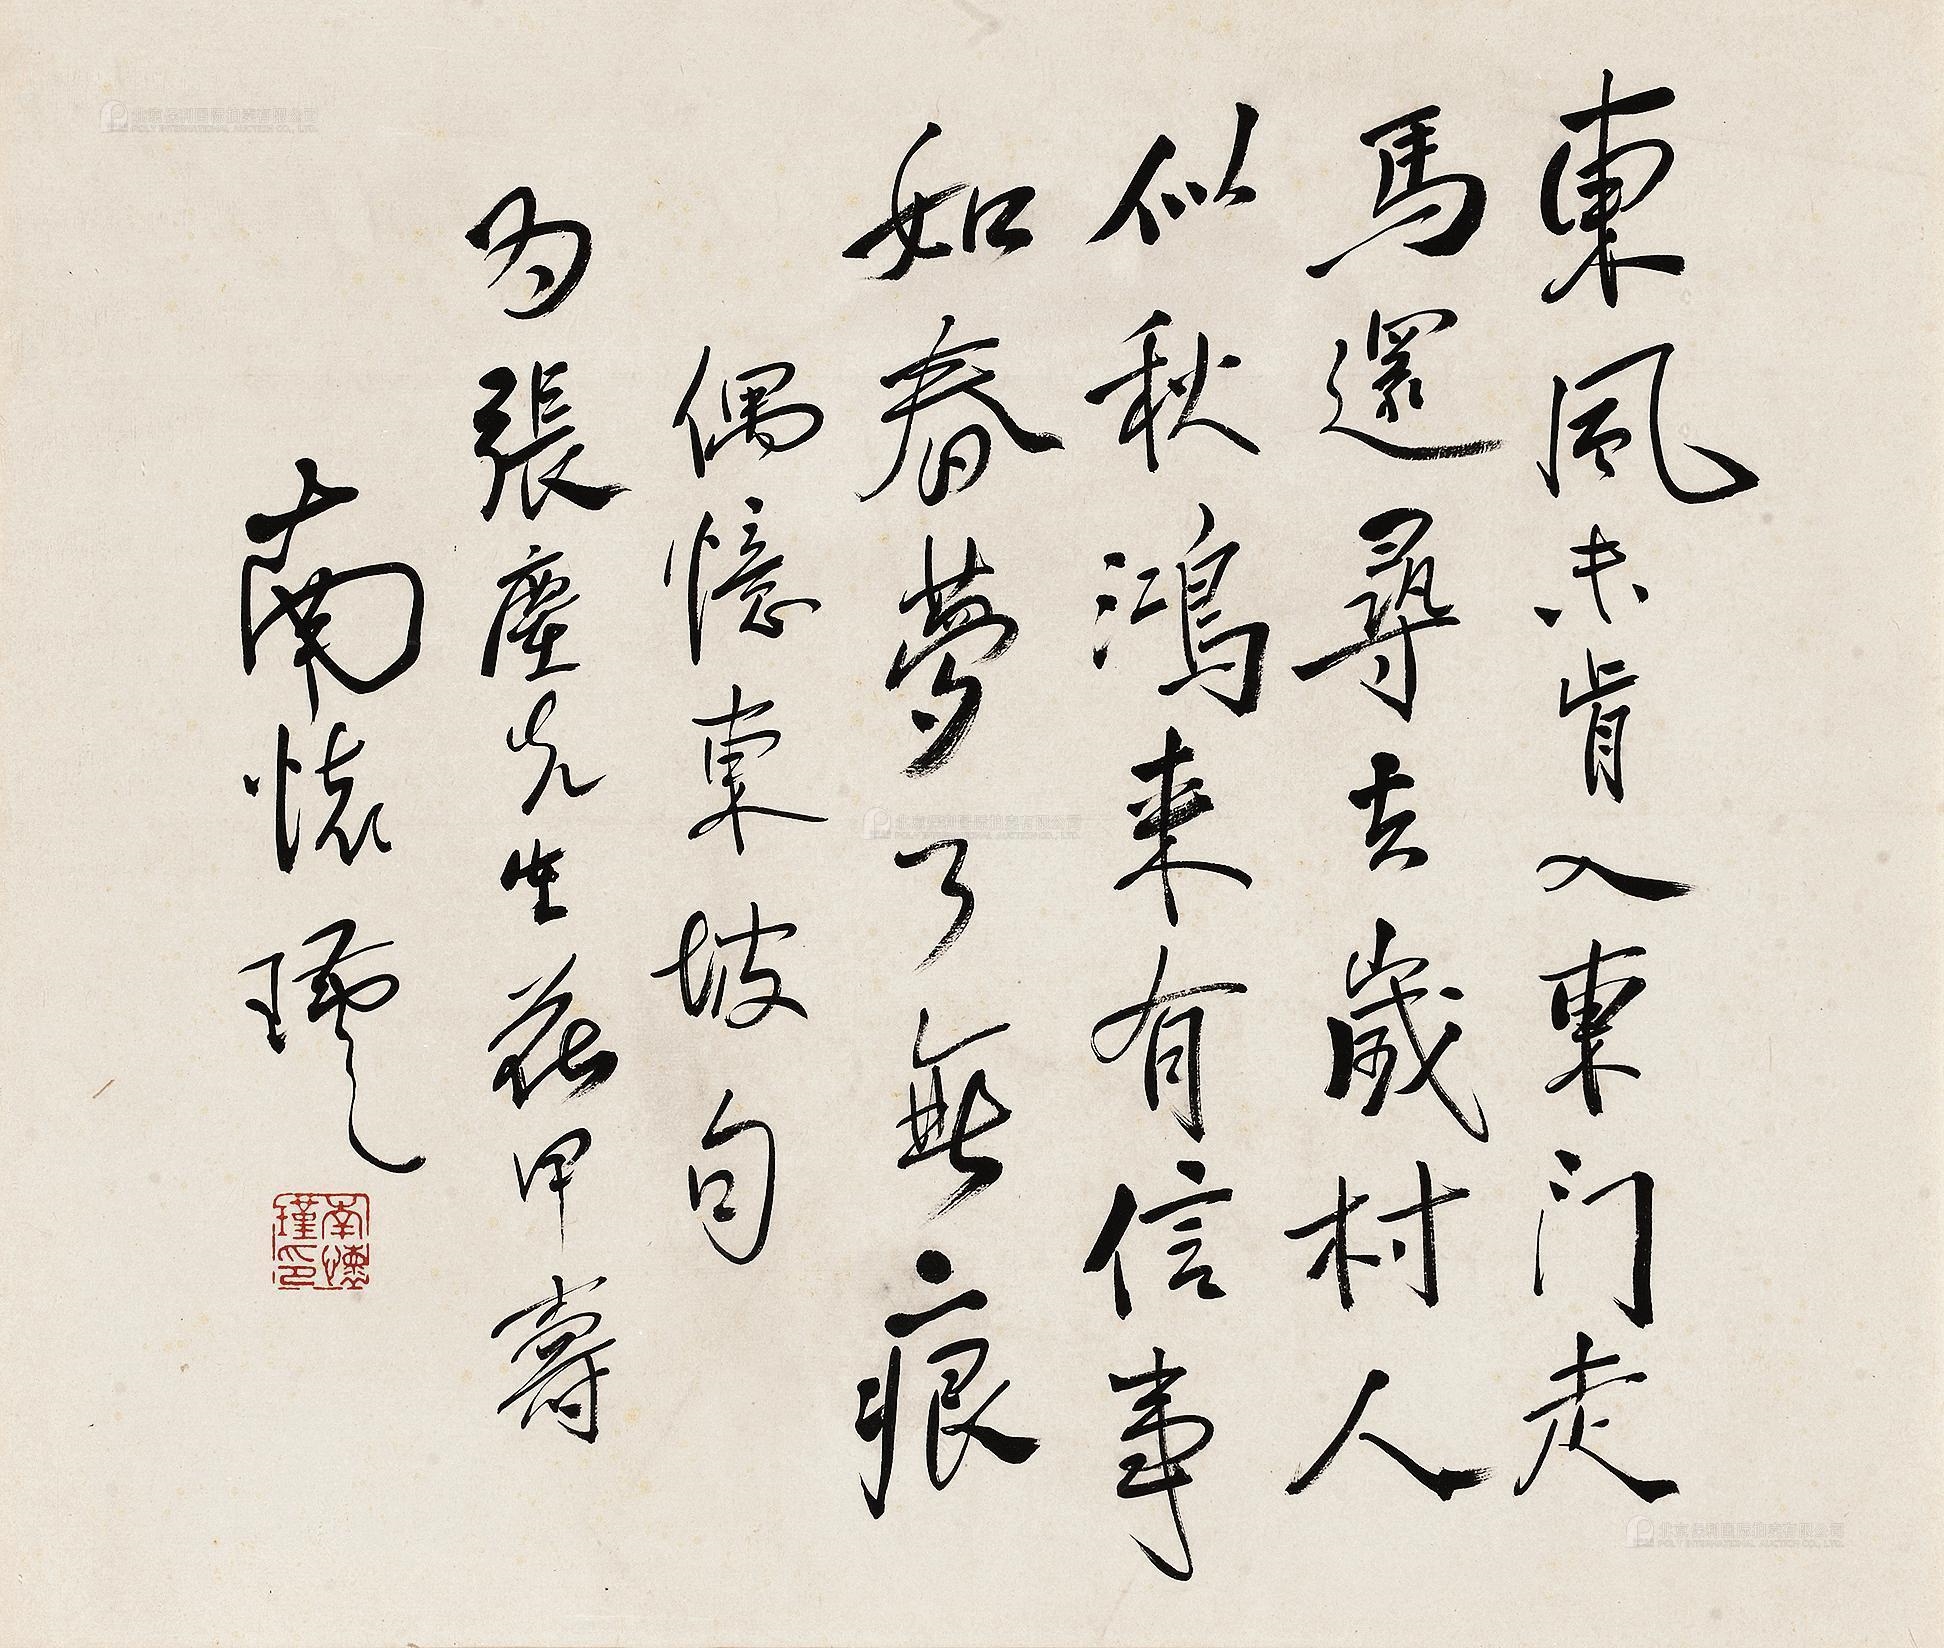 東風未肯入東门走
馬還尋去歲村人
似秋鴻来有信事
如春夢了無痕
偶憶東坡句
为張塵先生花甲壽
南懷瑾
南懷
瑾印
北京保利国际拍卖有限公司
POLY INTERNATIONAL AUCTION CO., LTD.
北京保利国际拍卖有限公司
POLY INTERNATIONAL AUCTION CO., LTD.
北京保利国际拍卖有限公司
POLY INTERNATIONAL AUCTION CO., LTD.